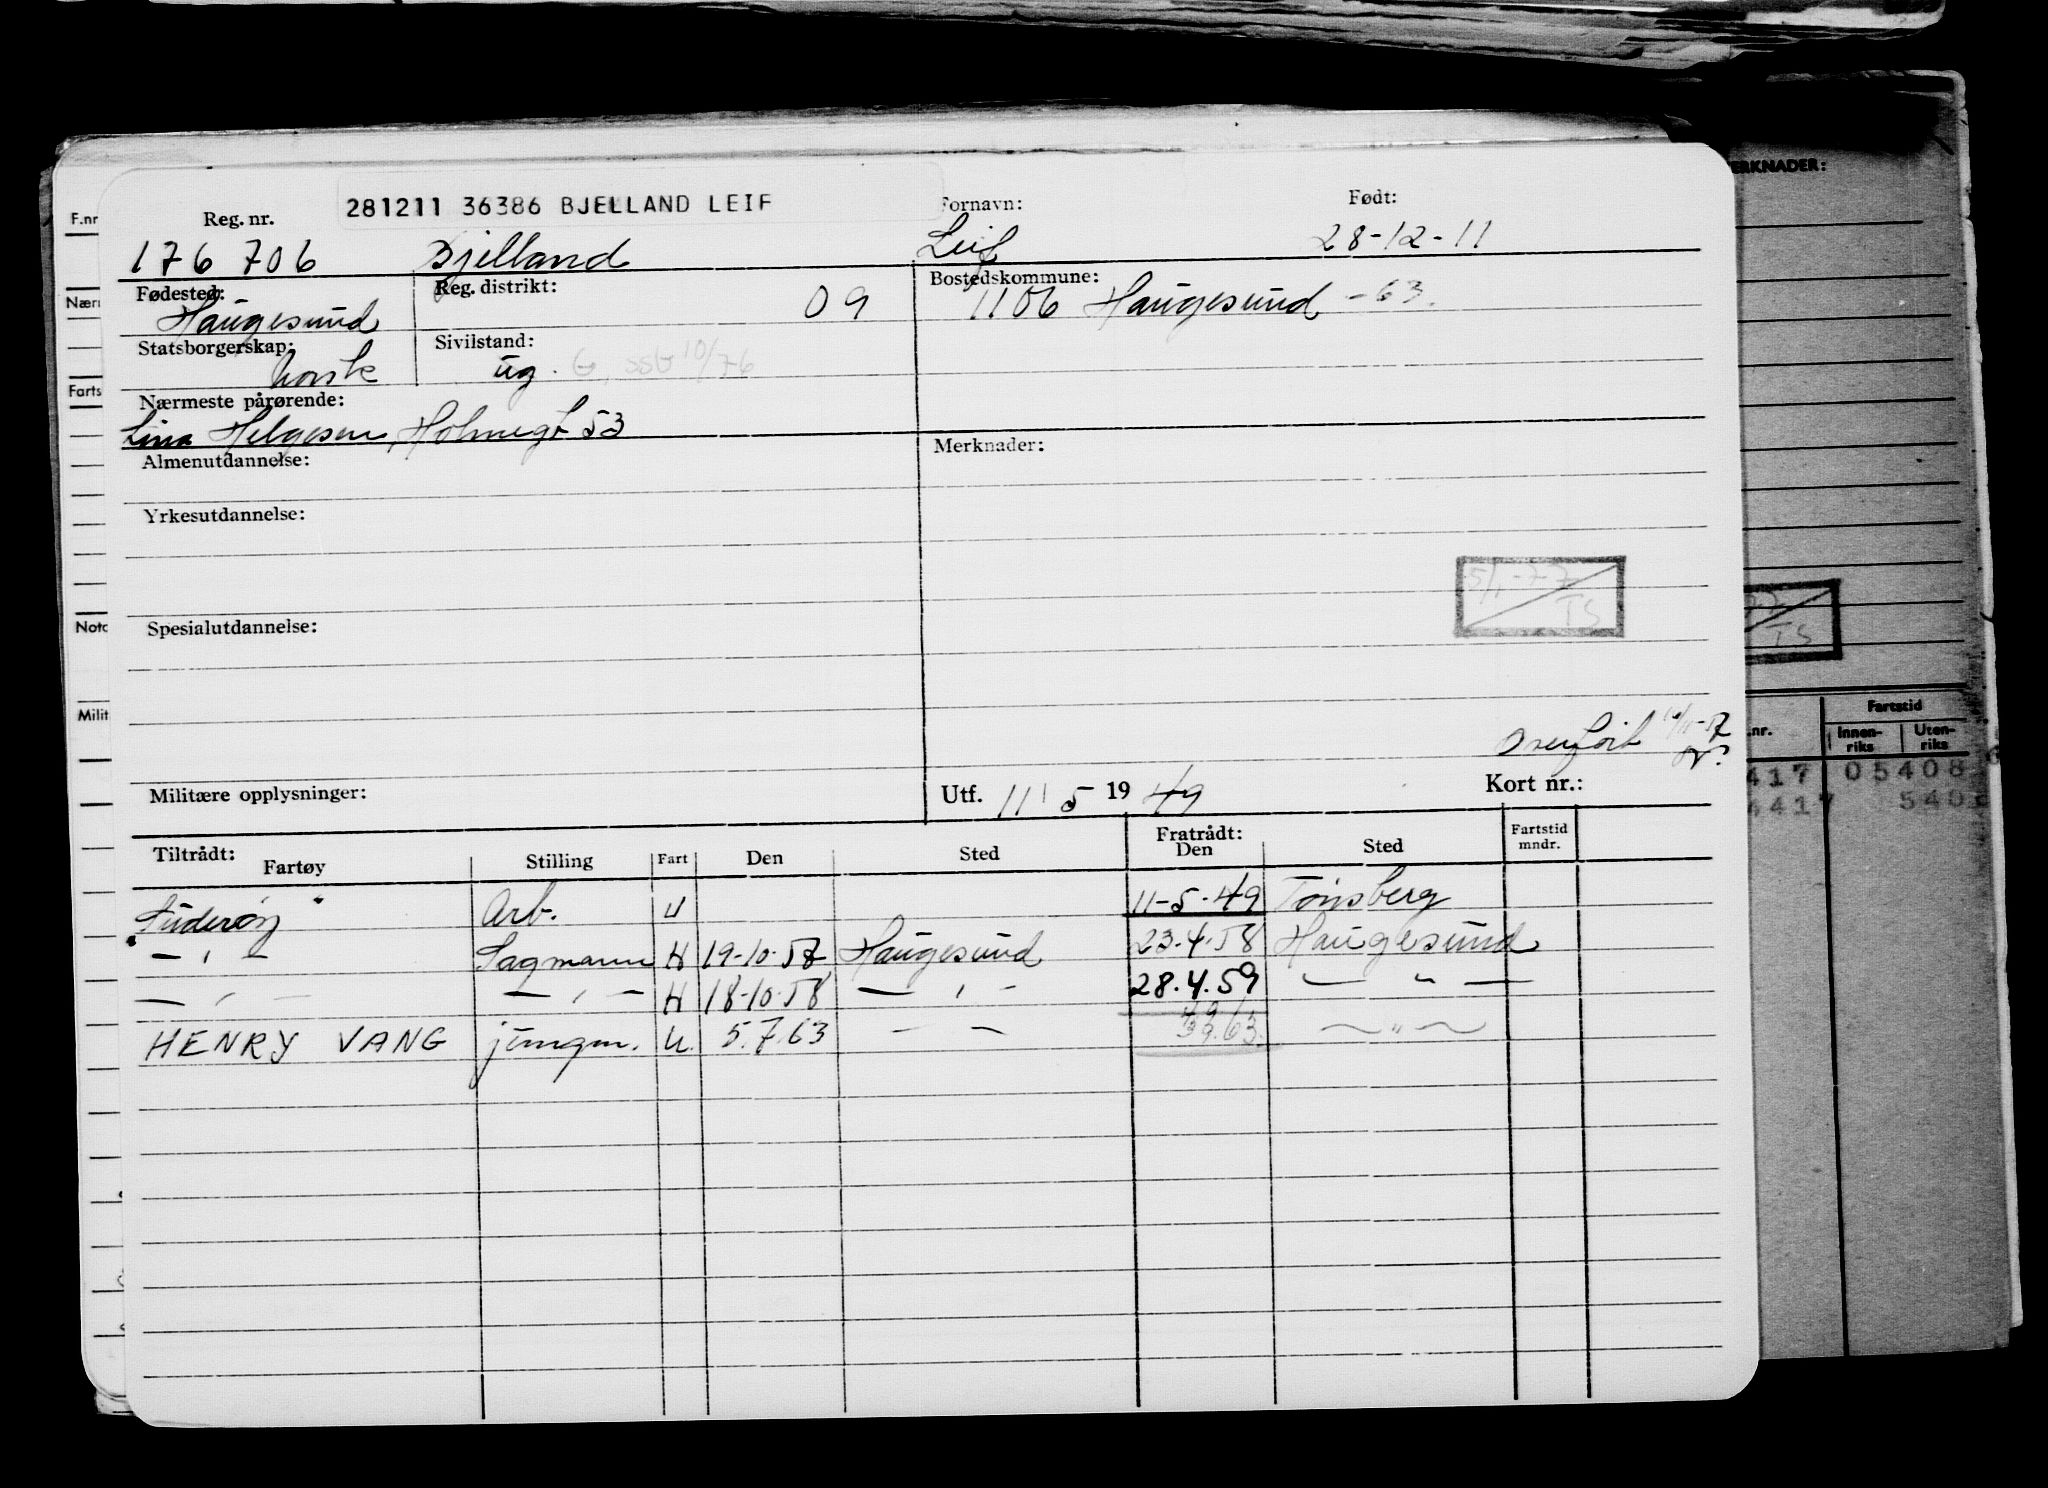 ERKNADER:
F.nr
Reg. nr. 281211 36386 BJELLAND LEIF Fornavn: Født:
176 706 Bjelland Leif 28-12-11
Fødested: Reg. distrikt: Bostedskommune:
Nærm
Haugesund 09 1106 Haugesund -63.
Statsborgerskap: Sivilstand:
norsk ug. G, SSB 10/76
Farts
Nærmeste pårørende:
Lina Helgesen, Holmegt 53
Almenutdannelse: Merknader:
Yrkesutdannelse:
5/1-77
TS
TS
Noto
Spesialutdannelse:
Milit
Overført 57
nr. Fartstid
Innen-riks Uten-riks
417 05408
4417 540
Militære opplysninger: Utf. 11 5 19 49 Kort nr.:
Tiltrådt: Fratrådt:
Fartøy Stilling Fart Den Sted Den Sted Fartstid mndr.
"Suderøy" Arb. U 11-5-49 Tønsberg
— " — Sagmann H 19-10-57 Haugesund 23.4.58 Haugesund
— " — — " — H 18-10-58 — " — 28.4.59 — " —
HENRY VANG jungm. U. 5.7.63 — — 63. — " —